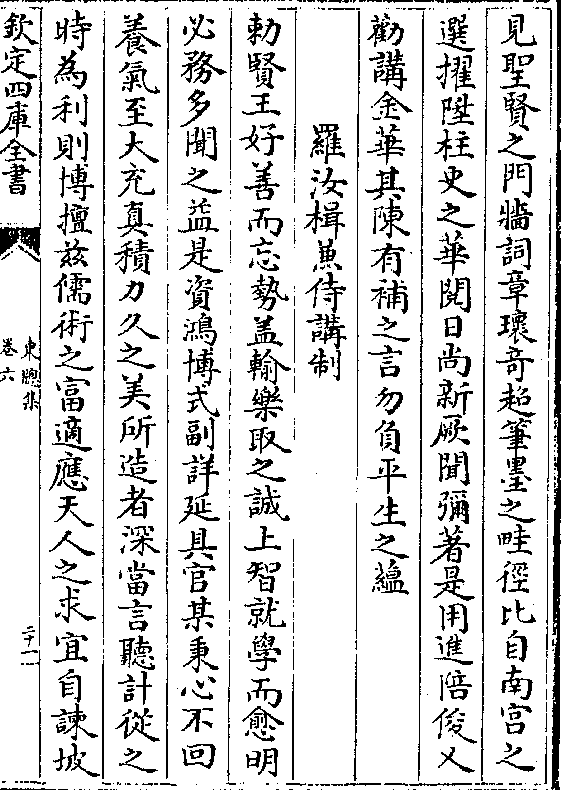 見聖賢之門牆詞章瓌竒超筆墨之畦徑比自南宫之
選擢陞柱史之華閱日尚新厥聞彌著是用進陪俊乂
勸講金華其陳有補之言勿負平生之蘊
羅汝楫兼侍講制
勅賢王好善而忘勢盖輸樂取之誠上智就學而愈明
必務多聞之益是資鴻博式副詳延具官某秉心不回
養氣至大充真積力久之美所造者深當言聽計從之
時為利則博擅兹儒術之富適應天人之求宜自諫坡
欽定四庫全書
東牕集
卷六
二十一